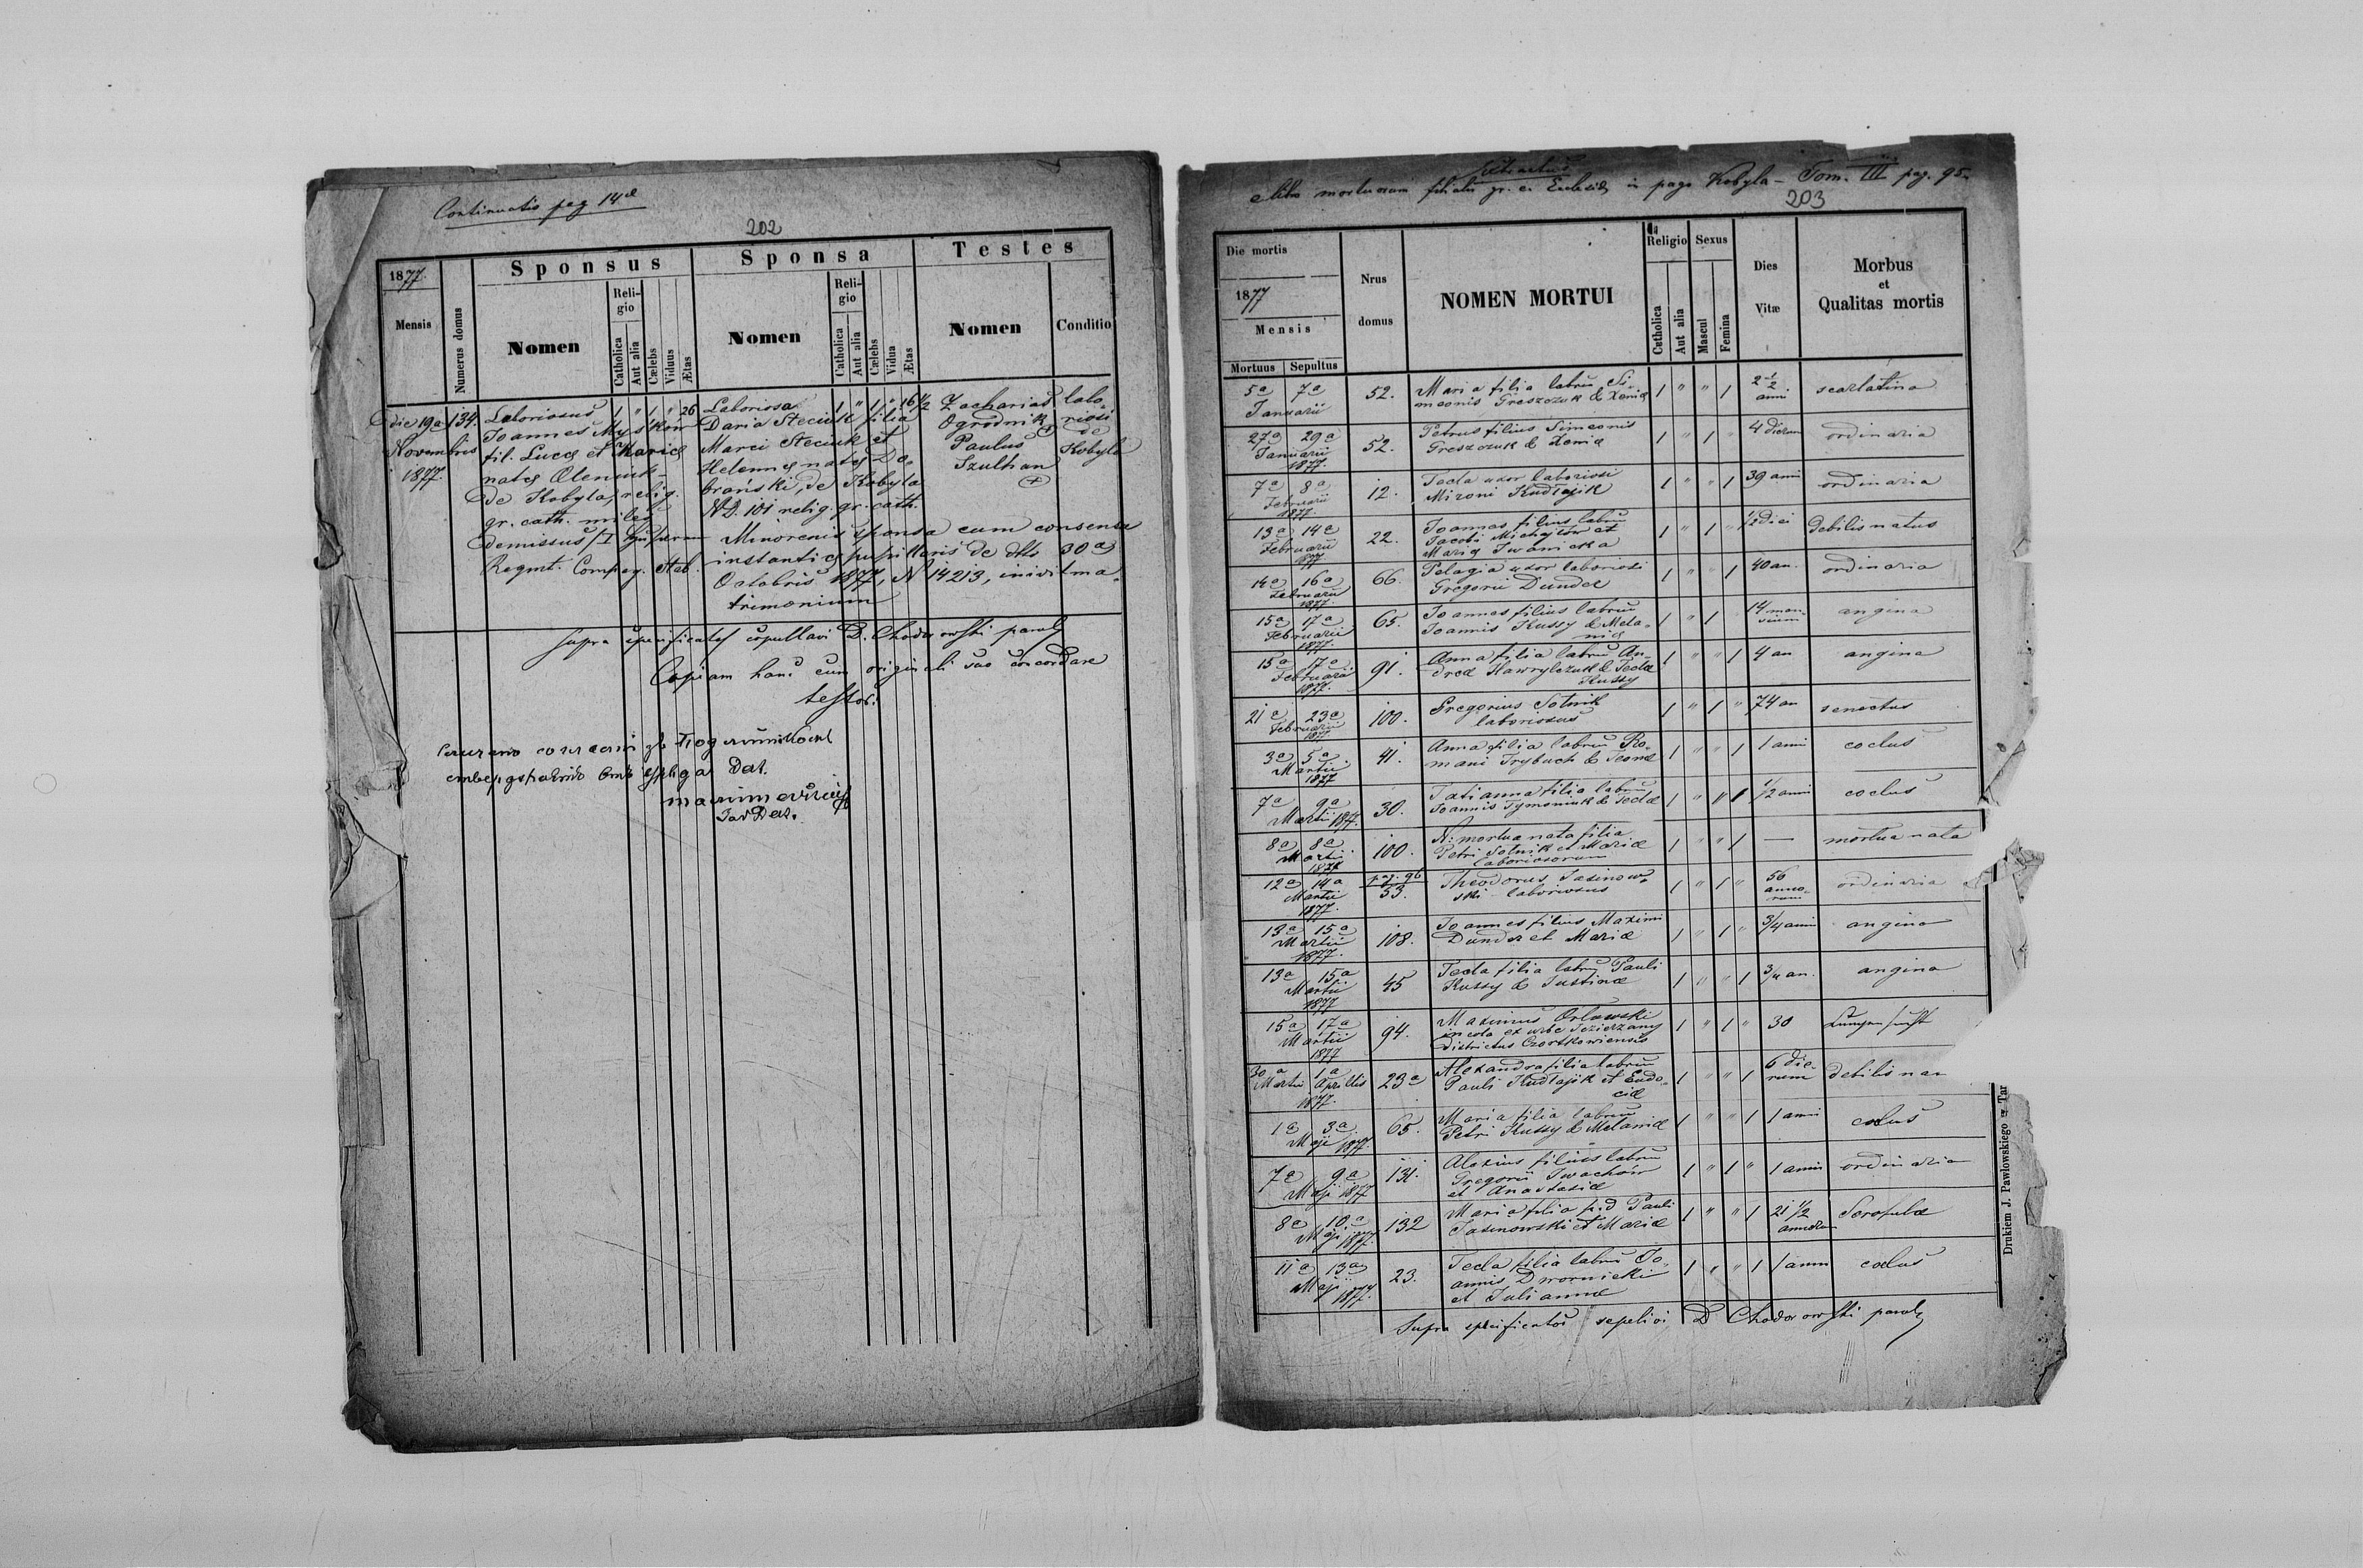 Continuatio pag 14æ
202
1877.
Mensis
Numerus domus
Sponsus
Nomen
Religio
Catholica
Aut alia
Cælebs
Viduus
Ætas
Sponsa
Nomen
Religio
Catholica
Aut alia
Cælebs
Vidua
Ætas
Testes
Nomen
Conditio
die 19a
Novembris
1877.
134.
Laboriosus
Joannes Myśków
fil. Lucæ et Mariæ
natæ Oleniuk
de Kobyla, relig.
gr. cath. miles
demissus
Regmt. Compag.
1 " 1 " 26
Laboriosa
Daria Steciuk filia
Marci Steciuk et
Helennæ natæ Do-
brański, de Kobyla
ND. 101 relig. gr. cath.
1 " 1 " 16 1/2
Minorenis sponsa cum consensu
instantiæ pupillaris de dtto 30a
Octobris 1877, N 14213, inivit ma-
trimonium
Zacharias
Ogrodnik +
Paulus
Szulhan
+
labo-
riosi
de
Kobyla
Supra specificatos copulavi D. Chodorowski paroch
Copiam hanc cum originali suo concordare
testor:
Extractus
e libro mortuorum filialis gr. c. Ecclesiæ in pago Kobyla – Tom. III pag. 95.
203
Die mortis
1877
Mensis
Mortuus Sepultus
Nrus domus
NOMEN MORTUI
Religio
Catholica
Aut alia
Sexus
Mascul
Femina
Dies Vitæ
Morbus
et
Qualitas mortis
5a 7a 52. Maria filia labrum Si- 1 " " 1 2 1/2 scarlatina
Januarii meonis Greszczuk & Xeniæ anni
27a 29a 52. Petrus filius Simeonis 1 " 1 " 4 dierum ordinaria
Januarii Greszczuk & Xeniæ
1877.
7a 8a 12. Tecla uxor laboriosi 1 " " 1 39 anni ordinaria
Februarii Mironi Kudłajik
1877.
13a 14a 22. Joannes filius labrum 1 " 1 " 1/2 diei debilis natus
Februarii Jacobi Michajłów et
1877 Mariæ Iwanicka
14a 16a 66. Pelagia uxor laboriosi 1 " " 1 40 an. ordinaria
Februarii Gregorii Dunder
1877.
15a 17a 65. Joannes filius labrum 1 " 1 14 men- angina
Februarii Joannis Hussy & Mela- sium
1877. niæ
15a 17a 91. Anna filia labrum An- 1 " " 1 4 an angina
Februarii dreæ Hawrylczuk & Teclæ
1877. Hussy
21a 23a 100. Gregorius Sotnik 1 " 1 " 74 an senectus
Februarii laboriosus
1877
3a 5a 41. Anna filia labrum Ro- 1 " " 1 1 anni coclus
Martii mani Trybuch &
1877
7a 9a 30. Tatianna filia labrum 1 " " 1 1/2 anni coclus
Martii 1877. Joannis Tymoniuk & Teclæ
8a 8a 100. N: mortua nata filia 1 " " 1 — mortua nata
Martii Petri Sotnik et Mariæ
1877 laboriosorum
pag. 96
12a 14a 53. Theodorus Jasinow- 1 " 1 " 56 ordinaria
Martii ski laboriosus anno-
1877. rum
13a 15a 108. Joannes filius Maximi 1 " 1 " 3/4 anni angina
Martii Dunder et Mariæ
1877.
13a 15a 45 Tecla filia labrum Pauli 1 " " 1 3/4 an. angina
Martii Hussy & Justinæ
1877
15a 17a 94. Maximus Orlowski 1 " 1 " 30
Martii incola ex urbe Jezierzany
1877 districtus Czortkowiensis
30a 1a 23a Alexandra filia labrum 1 " " 1 6 die- debilis na
Martii Aprilis Pauli Kudłajik et Eudo- rum
1877. ciæ
1a 3a 65. Maria filia labrum 1 " " 1 1 anni coclus
Maji 1877. Petri Hussy & Melaniæ
7a 9a 131. Alexius filius labrum 1 " 1 " 1 anni ordinaria
Maji 1877 Gregorii Iwachów
et Anastasiæ
8a 10a 132 Maria filia Pauli 1 " " 1 21 1/2 Scrofulæ
Maji 1877. Jasinowski et Mariæ annorum
11a 13a 23. Tecla filia labrum Jo- 1 " " 1 1 anni coclus
Maji 1877. annis Dwornicki
et Juliannæ
Supra specificatos sepelivi D Chodorowski paroch
Drukiem J. Pawłowskiego w Tar